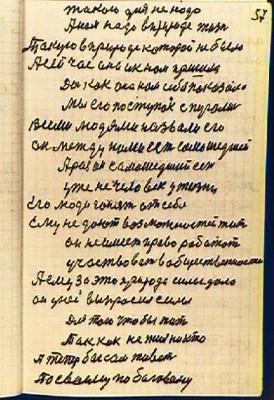 57
такого дня не надо
А нам надо в природе жизнь
Такую в природе которой не было
А сейчас она к нам пришла
Да как она нам себя показала
Мы его поступок с
Всеми людьми назвали его
он между нами есть самошедший
А раз он самошедший есть
уже не человек у жизни
Его люди гонят от себя
Ему не дают возможностей жить
он не имеет право работать
участвовать в общественности
А ему за это природа силы дала
он у неё выпросил силы
Для того чтобы жить
Так как не жил никто
А теперь сам живёт
По своему по